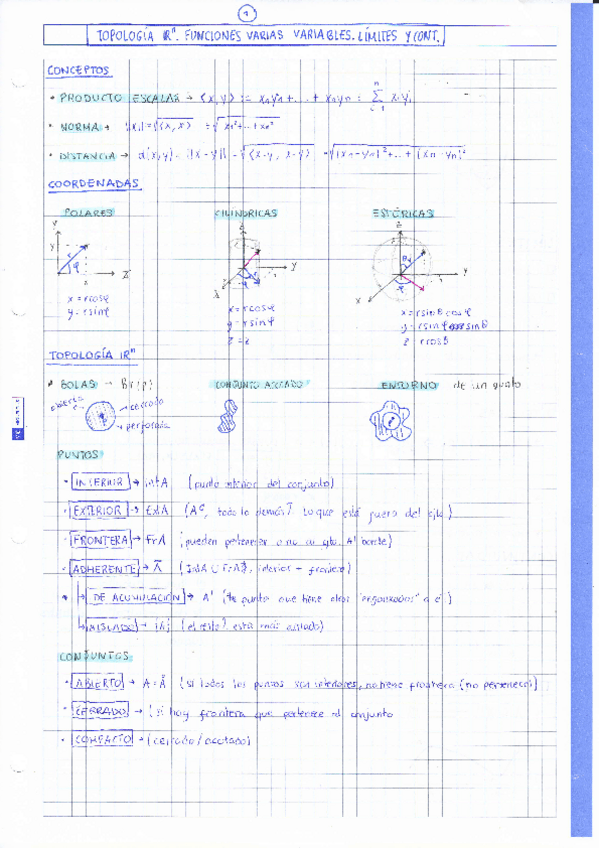 1
TOPOLOGÍA ℝⁿ. FUNCIONES VARIAS VARIABLES. LÍMITES Y CONT.
CONCEPTOS
• PRODUCTO ESCALAR → <x,y> := x₁y₁+...+ xₙyₙ = Σ xᵢyᵢ
• NORMA → ||x|| = √<x,x> = √x₁²+...+xₙ²
• DISTANCIA → d(x,y) = ||x-y|| = √<x-y, x-y> = √(x₁-y₁)²+...+(xₙ-yₙ)²
COORDENADAS
POLARES CILÍNDRICAS ESFÉRICAS
x = rcosφ
y = rsinφ
x = rcosφ
y = rsinφ
z = z
x = rsinθ cosφ
y = rsinφ sinθ
z = rcosθ
TOPOLOGÍA ℝⁿ
• BOLAS → Br(p) CONJUNTO ACOTADO ENTORNO de un punto
abierta → cerrada
→ perforada
PUNTOS
• INTERIOR → intA (punto interior del conjunto)
• EXTERIOR → ExtA (Aᶜ, todo lo demás? Lo que está fuera del cjto)
• FRONTERA → FrA (pueden pertenecer o no al cjto. Al borde)
• ADHERENTE → Ā (IntA ∪ FrA, interior + frontera)
• → DE ACUMULACIÓN → A' (te punto que tiene otros "enganxados" a él)
→ AISLADO → (el resto? está más aislado)
CONJUNTOS
• ABIERTO → A=Å (si todos los puntos son interiores, no tiene frontera (no pertenece))
• CERRADO → (si hay frontera que pertenece al conjunto
• COMPACTO → (cerrado/acotado)